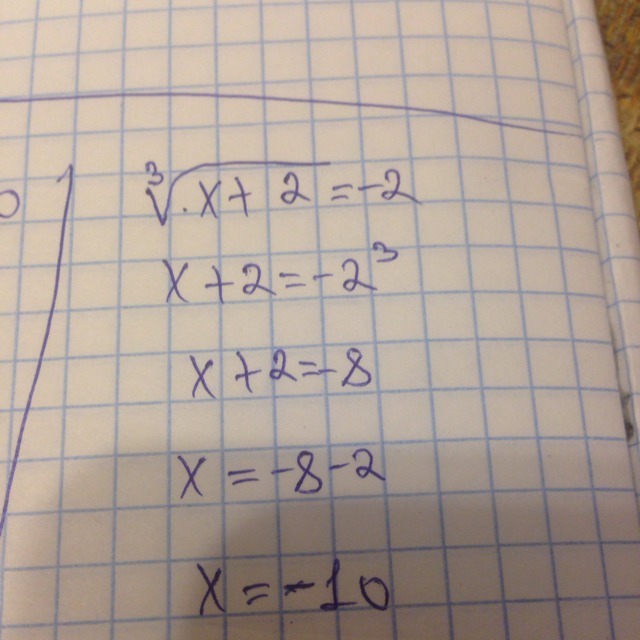 ∛x + 2 = -2
x + 2 = -2³
x + 2 = -8
x = -8 - 2
x = -10